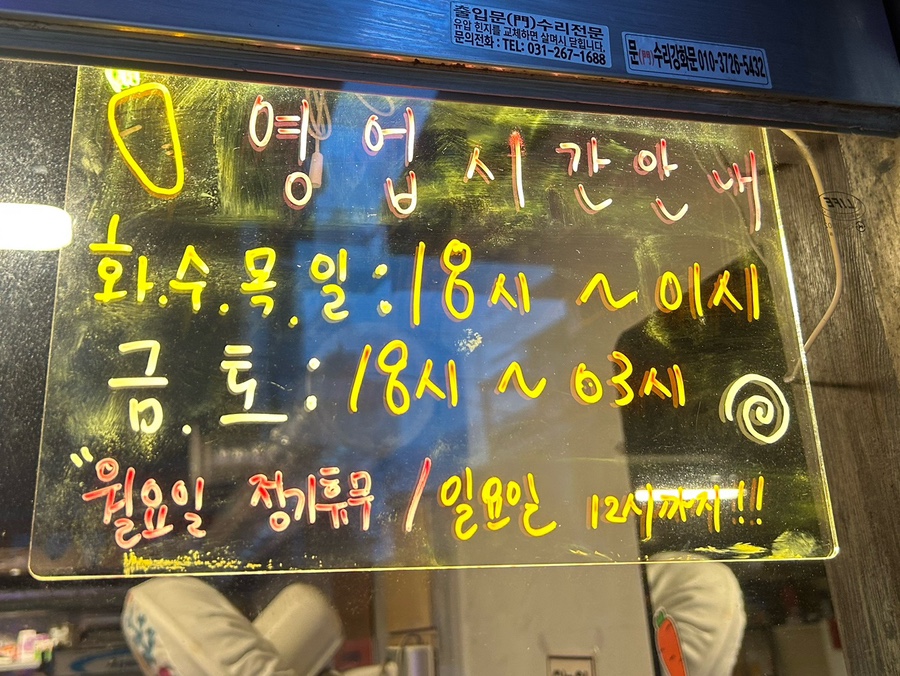 출입문(門)수리전문
유압 힌지를 교체하면 살며시 닫힙니다.
문의전화 : TEL: 031-267-1688
문(門)수리강화문 010-3726-5432
영업시간안내
화.수.목.일 : 18시 ~ 01시
금.토 : 18시 ~ 03시
"월요일 정기휴무 / 일요일 12시까지!!
LIFE